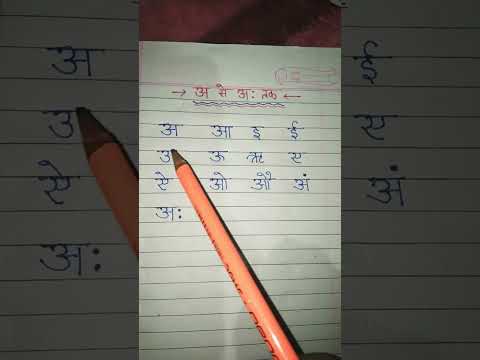 → अ से अ: तक ←
अ आ इ ई
उ ऊ ऋ ए
ऐ ओ औ अं
अ: